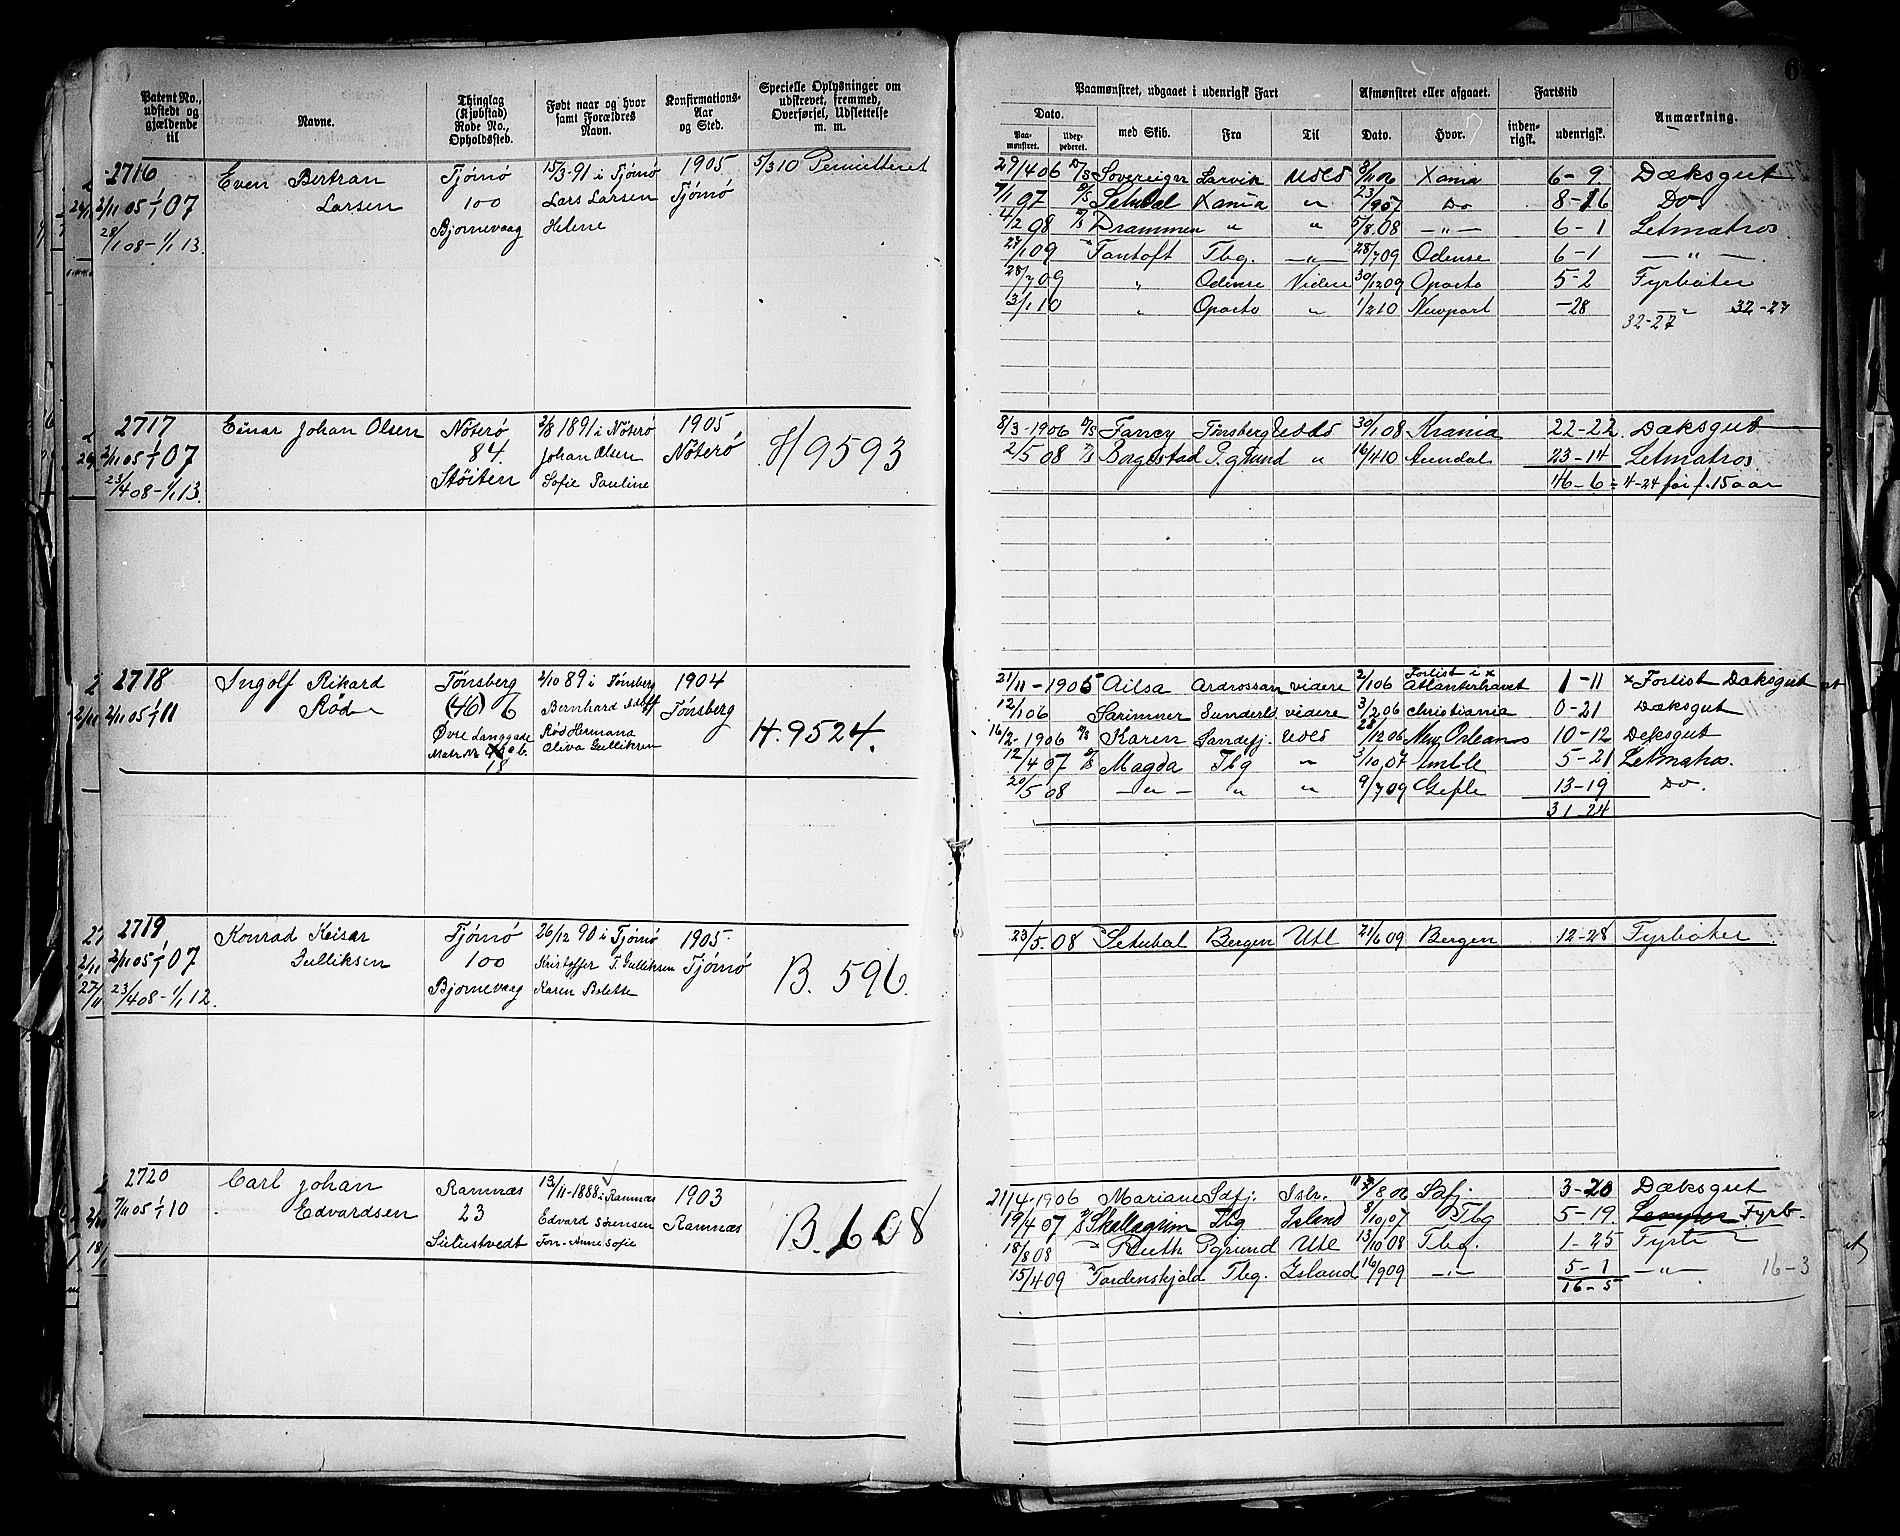 Patent No., udstedt og gjældende til
Navne.
Thinglag (Kjøbstad) Rode No., Opholdssted.
Født naar og hvor samt Forældres Navn.
Konfirmations-Aar og Sted.
Specielle Oplysninger om udskrevet, fremmed, Overførsel, Udslettelse m. m.
Paamønstret, udgaaet i udenrigsk Fart
Afmønstret eller afgaaet.
Fartstid
Anmærkning.
Dato.
Paa-mønstret.
med Skib.
Fra
Til
Dato.
Hvor.
inden-rigsk.
udenrigsk.
2716
2/11 05-1/1 07
28/1 08-1/1 13.
Even Bertran
Larsen
Tjømø
100
Bjørnevaag
15/3-91 i Tjømø
Lars Larsen
Helene
1905
Tjømø
5/3 10 Permitteret
29/4 06 D/S Sovereign Larvik Udld 8/11 06 Xania 6-9 Dæksgut
7/1 07 D/S Setudal Xania " 23/ 1907 Do 8-16 Do
4/2 08 Drammen " " 5/8.08 -"- 6-1 Letmatros
27/1 09 Fantoft Tbg. -"- 28/7 09 Odense 6-1 -"-
28/7 09 " Odense Videre 30/12 09 Oporto 5-2 Fyrbøter
13/1 10 " Oporto " 1/2 10 Newport -28 "
32-27 32-27
2717
2/11 05-1/1 07
23/4 08-1/1 13.
Einar Johan Olsen
Nøterø
84
Støiten
2/8 1891 i Nøterø
Johan Olsen
Sofie Pauline
1905
Nøterø
H 9593
8/3-1906 D/S Fancy Tønsberg Udld 30/1 08 Krania 22-22. Dæksgut
2/5 08 Borgestad P.grund " 16/4 10 Arendal 23-14 Letmatros
46-6 = 4-24 før f. 15 aar
2718
2/11 05 1/1 11
Ingolf Rikard
Rød
Tønsberg
(46) 6
Øvre Langgade
Matr Nr 46 b.
18
2/10 89 i Tønsberg
Bernhard Adolf
Rød Hermana
Oliva Gulliksen
1904
Tønsberg
H. 9524.
21/11-1905 Ailsa Ardrossan videre 2/1 06 Forlist i x Atlanterhavet 1-11 x Forlist Dæksgut
12/1 06 Sarimner Sunderld videre 3/2 06 Christiania 0-21 Dæksgut
16/2-1906 Karen Sandefj. Udld 28/12 06 New Orleans 10-12 Deksgut
12/4 07 Magda Tbg " 3/10 07 5-21 Letmatros.
20/5 08 -"- " " 9/7 09 Gefle 13-19 Do.
31-24
2719
2/11 05-1/1 07
23/4 08-1/1 12.
Konrad Keisar
Gulliksen
Tjømø
100
Bjørnevaag
26/12 90 i Tjømø
Kristoffer T. Gulliksen
Karen Bolette
1905
Tjømø
B. 596.
23/5.08 Setubal Bergen Utl 21/6 09 Bergen 12-28 Fyrbøter
2720
7/11 05-1/1 10
Carl Johan
Edvardsen
Ramnæs
23
13/11-1888 i Ramnæs
Edvard Sørensen
Fon. Anne Sofie
1903
Ramnæs
B. 608
21/4-1906 Mariane Sdfj. Isbr. /8 06 Sdfj. 3-20 Dæksgut
19/4 07 Skallagrim Tbg Island 8/10 07 Tbg 5-19. Fyrb-
18/8 08 Ruth Pgrund Utl 13/10 08 Tbg. 1-25 Fyrb
15/4 09 Tordenskjold Tbg. Island 16/9 09 -"- 5-1 -"- 16-3
16-5